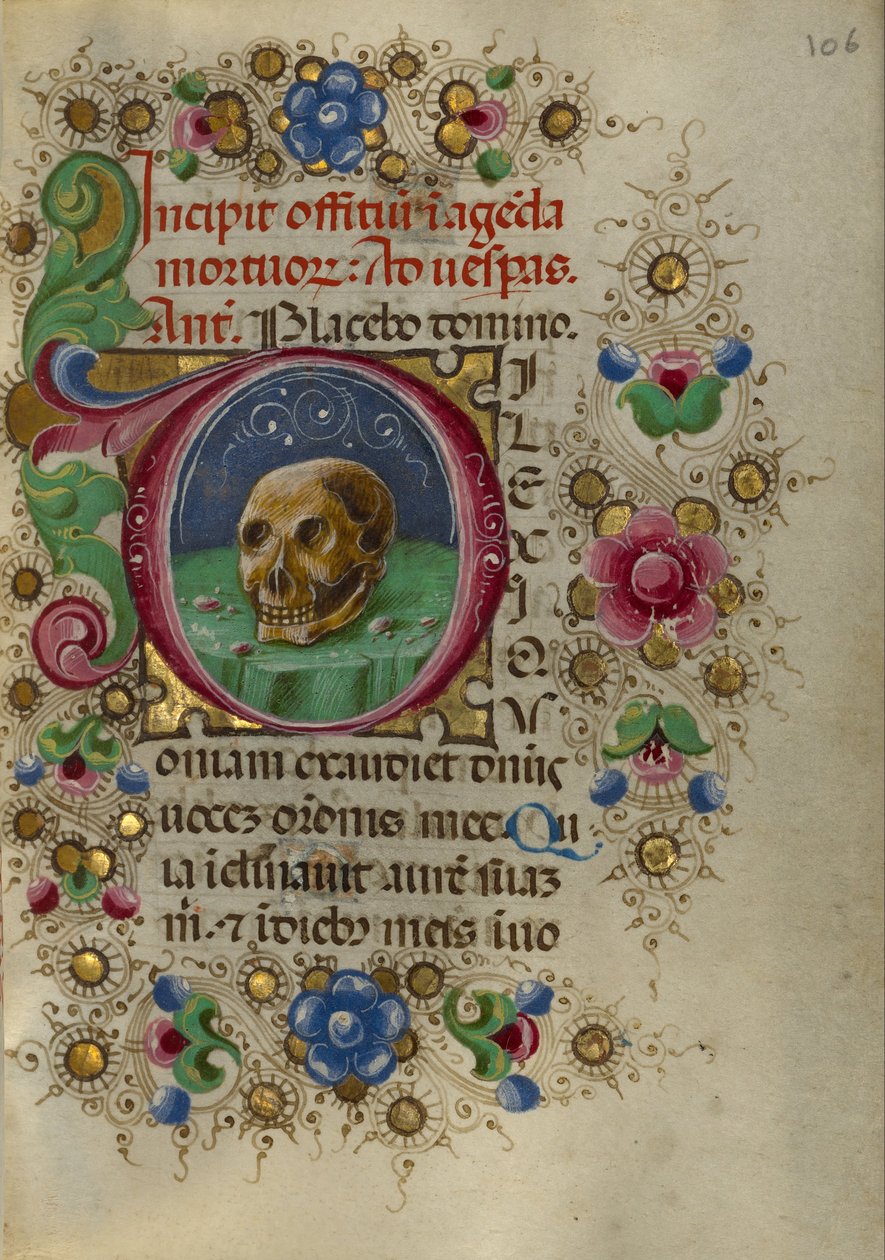 106
Incipit offitiū ī agēda
mortuoꝝ: Ad uespas.
Ant̄. Placebo domino.
D
I
L
E
X
I
Q
V
oniam exaudiet dn̄us
uocez or̄onis mee. Qu
ia īclinauit aurē suaz
m̄. ⁊ ī dieb⁊ meis īuo